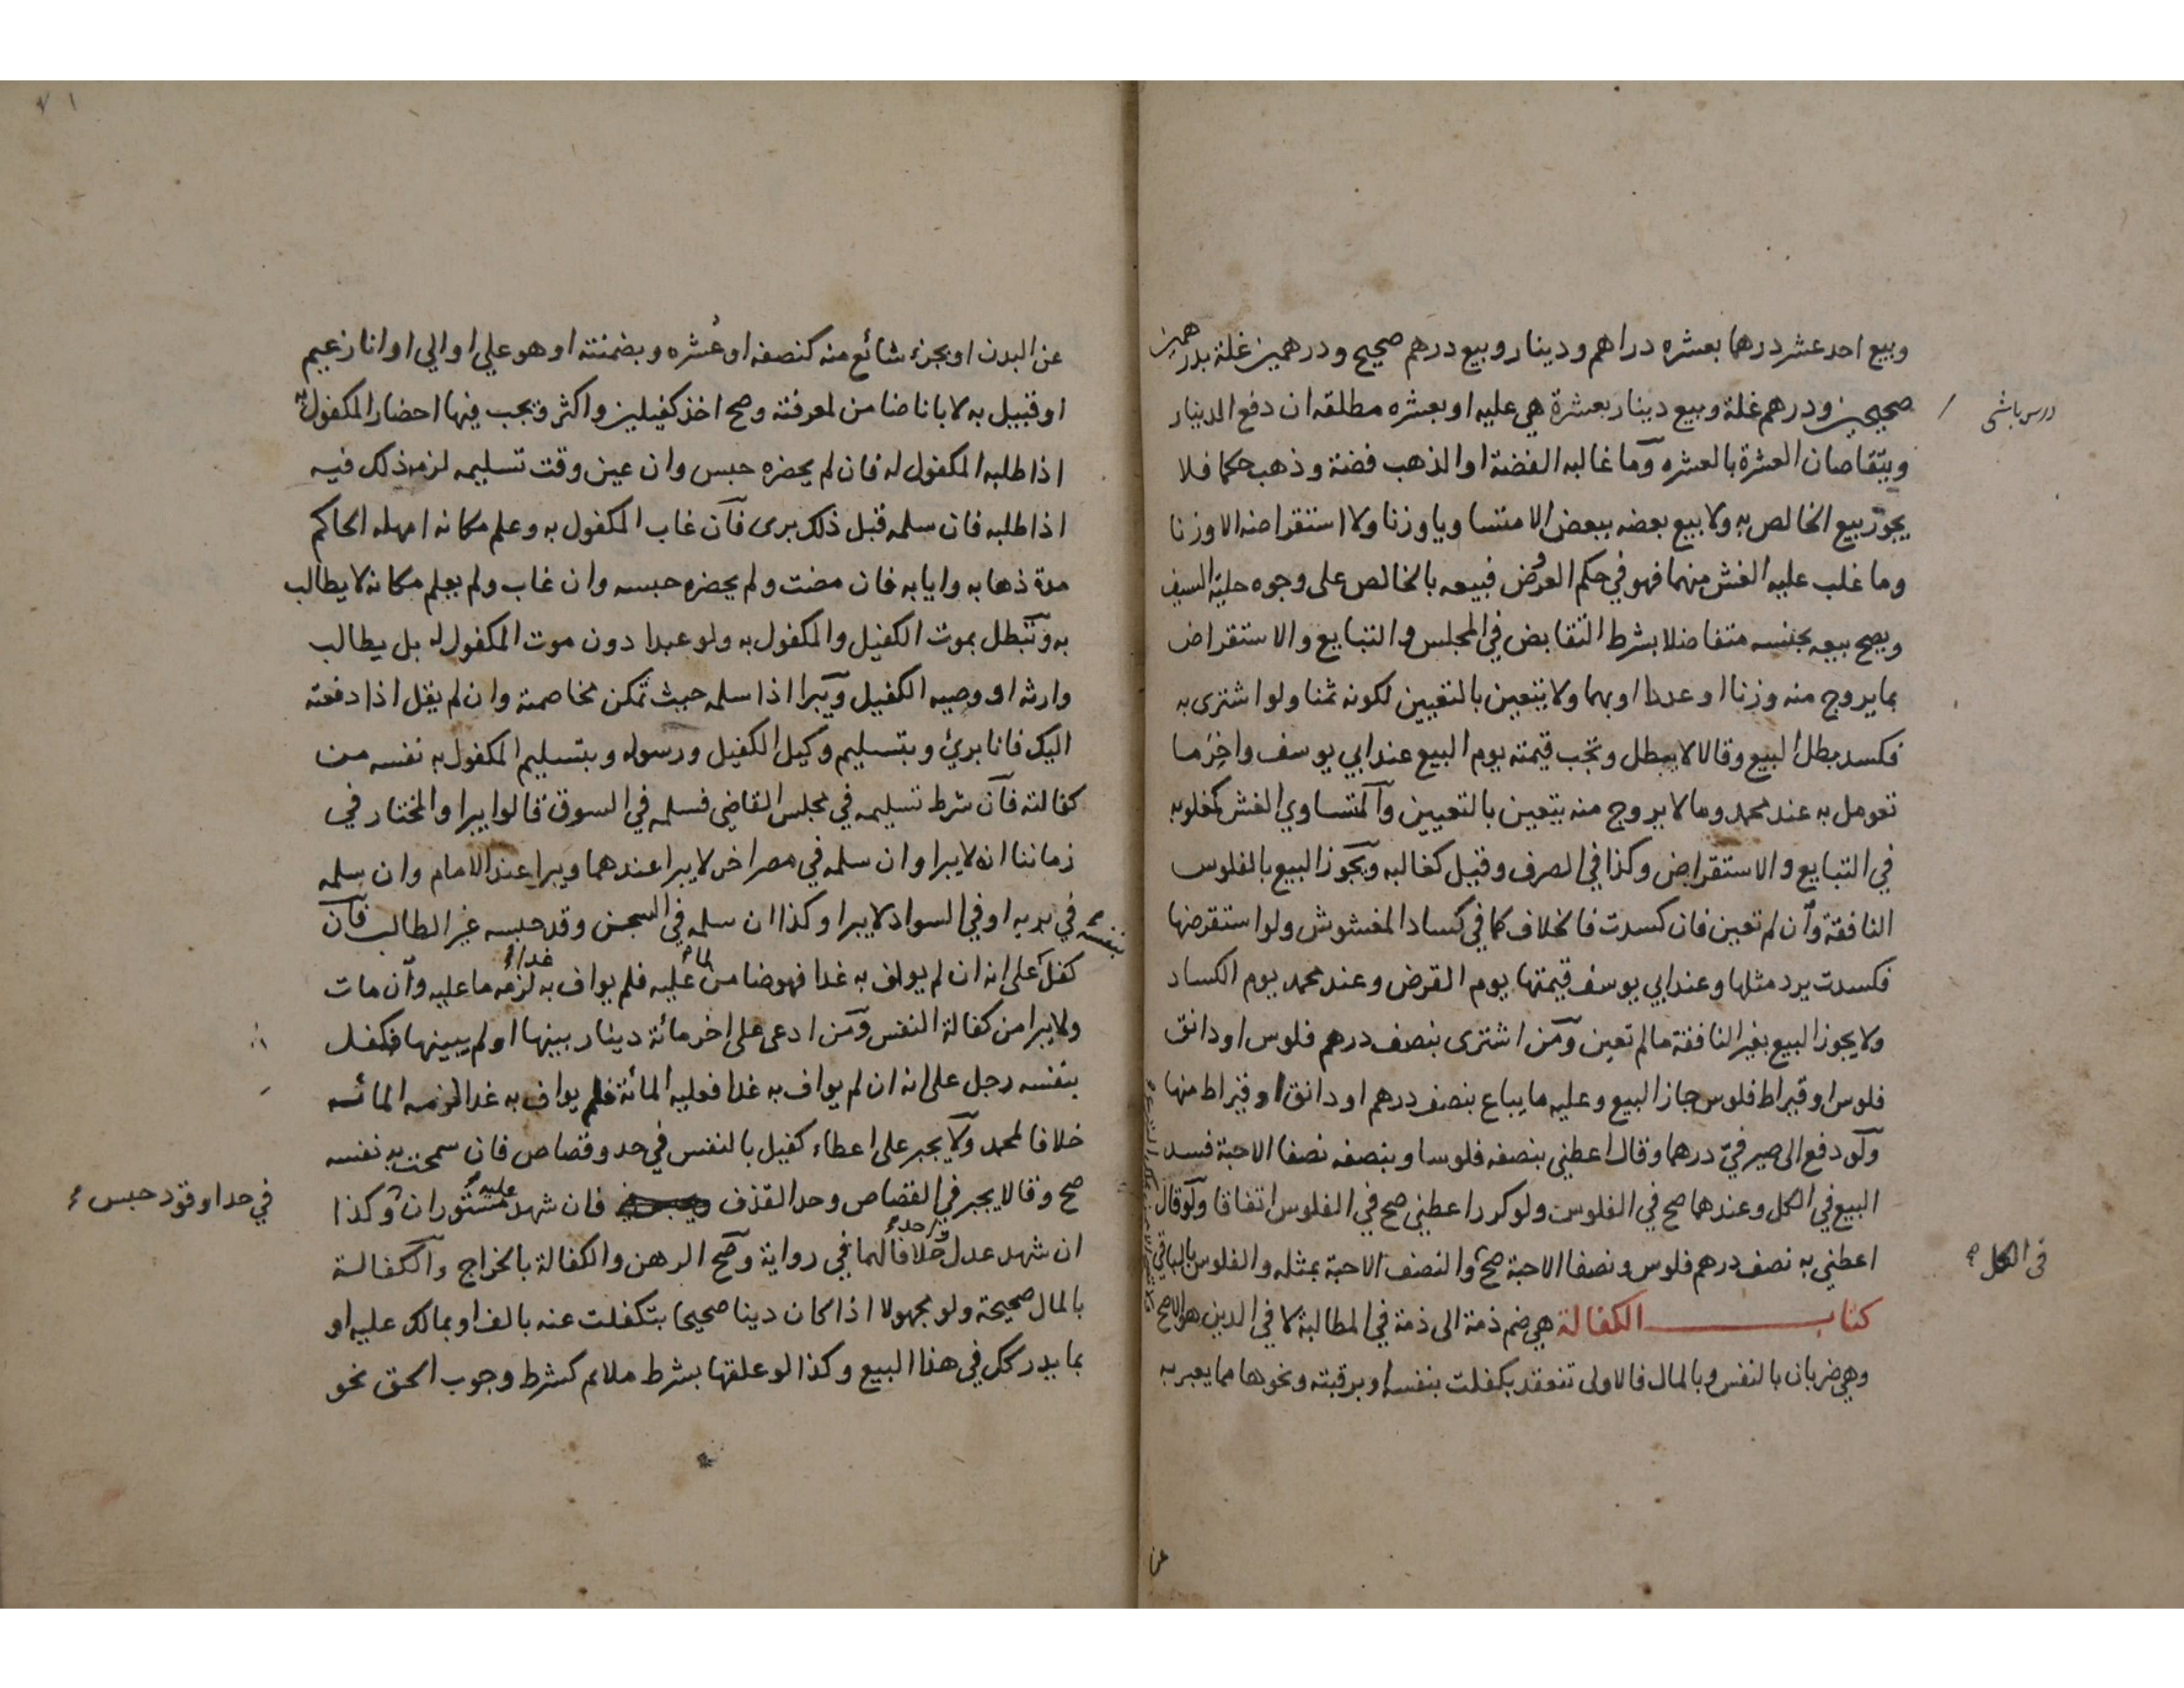 وبيع احد عشر درهما بعشره دراهم ودينار وبيع درهم صحيح ودرهمين غلة بدرهمين
صحيحين ودرهم غلة وبيع دينار بعشرة هي عليه او بعشره مطلقه ان دفع الدينار
درس باشى
ويتقاصان العشرة بالعشره وما غالبه الفضة او الذهب فضة وذهب حكما فلا
يجوز بيع الخالص به ولا بيع بعضه ببعض الا متساويا وزنا ولا استقراضه الا وزنا
وما غلب عليه الغش منهما فهو في حكم العروض فبيعه بالخالص على وجوه حلية السيف
ويصح بيعه بجنسه متفاضلا بشرط التقابض في المجلس والتبايع والاستقراض
بما يروج منه وزنا او عددا او بهما ولا يتعين بالتعيين لكونه ثمنا ولو اشترى به
فكسد بطل البيع وقالا لا يبطل وتجب قيمته يوم البيع عند ابي يوسف واخر ما
تعومل به عند محمد وما لا يروج منه يتعين بالتعيين والمتساوي الغش كمغلوبه
في التبايع والاستقراض وكذا في الصرف وقيل كغالبه ويجوز البيع بالفلوس
النافقة وان لم تعين فان كسدت فالخلاف كما في كساد المغشوش ولو استقرضها
فكسدت يرد مثلها وعند ابي يوسف قيمتها يوم القرض وعند محمد يوم الكساد
ولا يجوز البيع بغير النافقة ما لم تعين ومن اشترى بنصف درهم فلوس او دانق
فلوس او قيراط فلوس جاز البيع وعليه ما يباع بنصف درهم او دانق او قيراط منها
ولو دفع الى صيرفي درهما وقال اعطني بنصفه فلوسا وبنصفه نصفا الا حبة فسد
البيع في الكل وعندهما صح في الفلوس ولو كرر اعطني صح في الفلوس اتفاقا ولو قال
اعطني به نصف درهم فلوس ونصفا الا حبة صح والنصف الا حبة بمثله والفلوس بالباقي
في الكل
كتاب الكفالة هي ضم ذمة الى ذمة في المطالبة لا في الدين هو الاصح
وهي ضربان بالنفس وبالمال فالاولى تنعقد بكفلت بنفسه او برقبته ونحوها مما يعبر به
عن
٧١
عن البدن او بجزء شائع منه كنصفه او عشره وبضمنته او هو علي او الي او انا زعيم
او قبيل به لا بانا ضامن لمعرفته وصح اخذ كفيلين واكثر ويجب فيها احضار المكفول به
اذا طلبه المكفول له فان لم يحضره حبس وان عين وقت تسليمه لزمه ذلك فيه
اذا طلبه فان سلمه قبل ذلك برى فان غاب المكفول به وعلم مكانه امهله الحاكم
مدة ذهابه وايابه فان مضت ولم يحضره حبسه وان غاب ولم يعلم مكانه لا يطالب
به وتبطل بموت الكفيل والمكفول به ولو عبدا دون موت المكفول له بل يطالب
وارثه او وصيه الكفيل ويبرا اذا سلمه حيث تمكن مخاصمته وان لم يقل اذا دفعته
اليك فانا برئ وبتسليم وكيل الكفيل ورسوله وبتسليم المكفول به نفسه من
كفالته فان شرط تسليمه في مجلس القاضي فسلمه في السوق قالوا يبرا والمختار في
زماننا انه لا يبرا وان سلمه في مصر اخر لا يبرا عندهما ويبرا عند الامام وان سلمه
في بريه او في السواد لا يبرا وكذا ان سلمه في السجن وقد حبسه غير الطالب فان
بنفسه
كفل على انه ان لم يواف به غدا فهو ضامن لما عليه فلم يواف به غدا لزمه ما عليه وان مات
ولا يبرا من كفالة النفس ومن ادعى على اخر مائة دينار بينها او لم يبينها فكفل
بنفسه رجل على انه ان لم يواف به غدا فعليه المائة فلم يواف به غدا لزمه المائه
خلافا لمحمد ولا يجبر على اعطاء كفيل بالنفس في حد وقصاص فان سمحت به نفسه
صح وقالا يجبر في القصاص وحد القذف فان شهد عليه مستوران وكذا
في حد او قود حبس
ان شهد عدل واحد خلافا لهما في رواية وصح الرهن والكفالة بالخراج والكفالة
بالمال صحيحة ولو مجهولا اذا كان دينا صحيحا بتكفلت عنه بالف او بمالك عليه او
بما يدركك في هذا البيع وكذا لو علقها بشرط ملائم كشرط وجوب الحق نحو